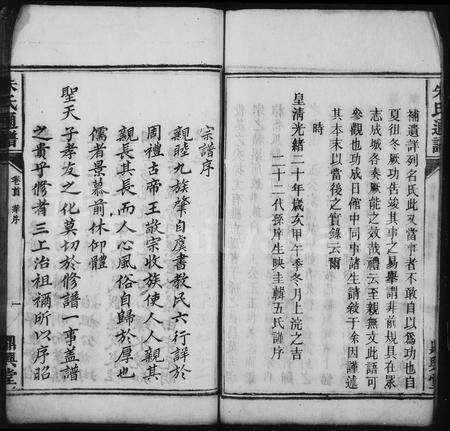 補遺詳列名氏此又當事者不敢自以為功也自
夏徂冬厥功告竣其事之易舉謂非前規具在眾
志成城各奏厥能之效哉禮云至親無文此語可
參觀也功成日僚中同事諸生請敍于余因謹述
其本末以當後之實錄云爾
時
皇清光緒二十年歲次甲午季冬月上浣之吉
二十二代孫庠生映圭輯五氏謹序
朱氏通譜
鼎興堂
宗譜序
親睦九族肇自虞書教民六行詳於
周禮古帝王敬宗收族使人人親其
親長其長而人心風俗自歸於厚也
儒者景慕前休仰體
聖天子孝友之化莫切於修譜一事蓋譜
之貴乎修者三上治祖禰所以序昭
朱氏通譜
卷首 華序
一
鼎興堂